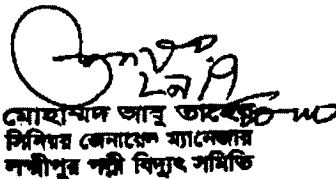 মোহাম্মদ আবু তাহের
সিনিয়র জেনারেল ম্যানেজার
লক্ষ্মীপুর পল্লী বিদ্যুৎ সমিতি